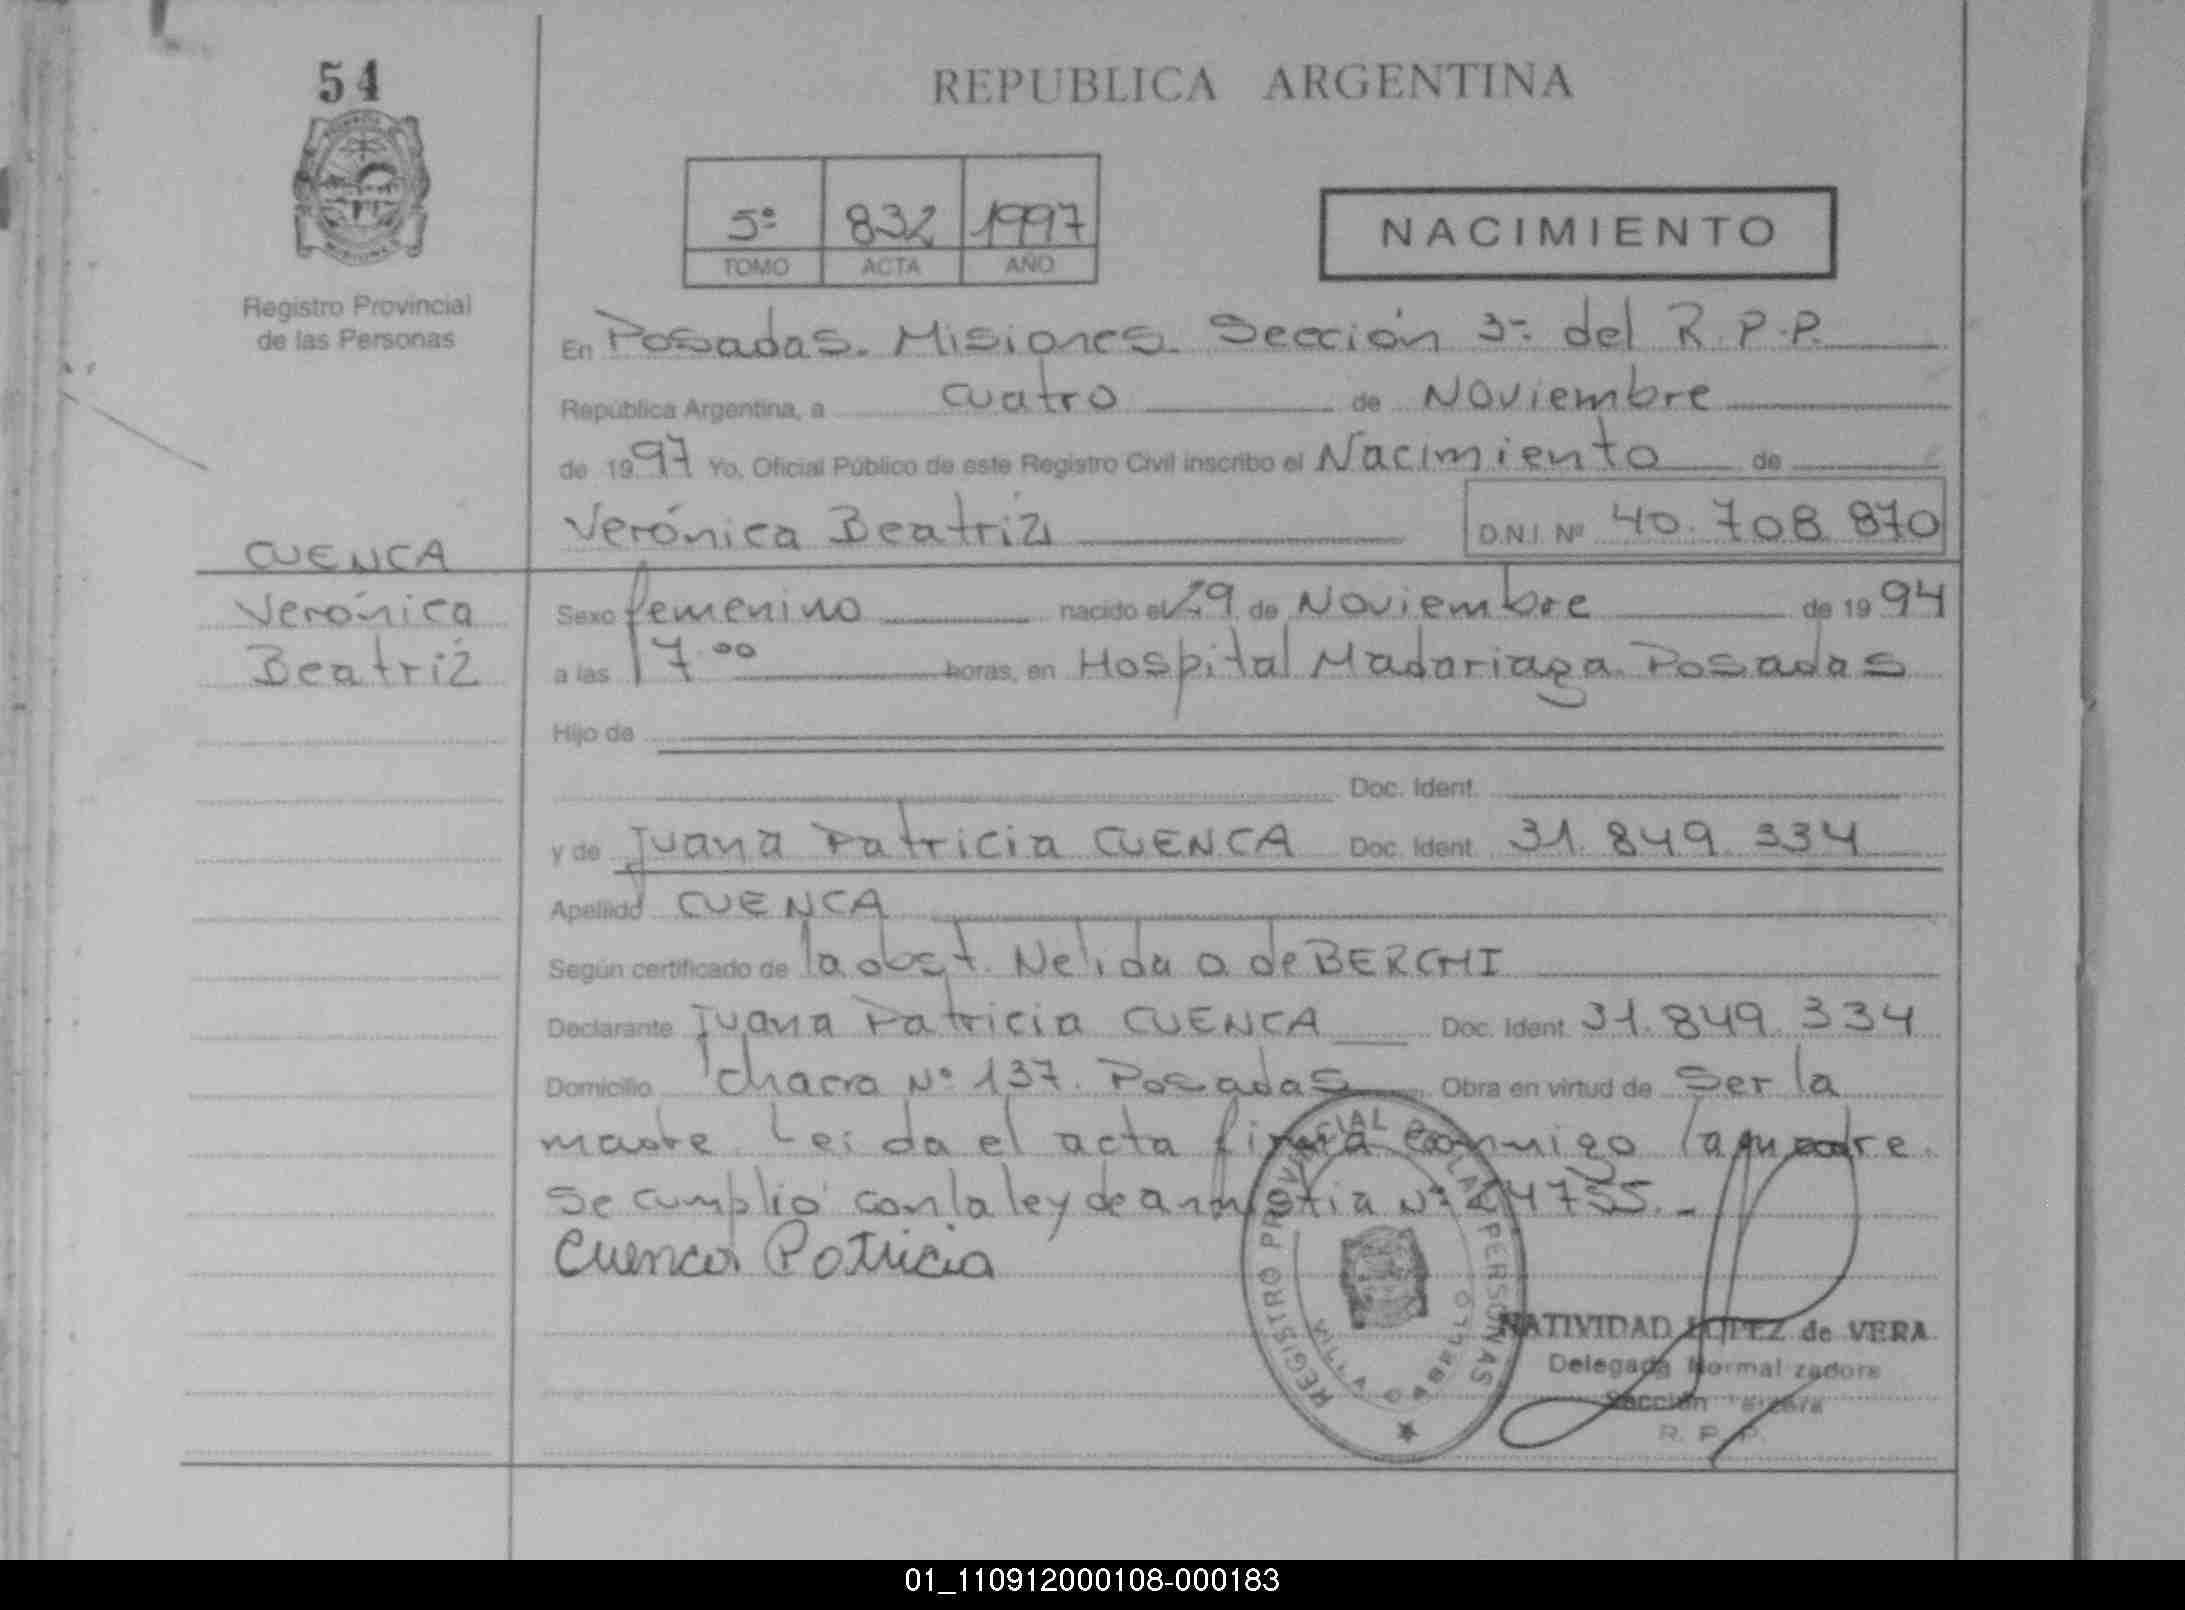 54
REPUBLICA ARGENTINA
5º 832 1997
TOMO ACTA AÑO
NACIMIENTO
Registro Provincial
de las Personas
En Posadas. Misiones. Sección 3ª del R.P.P.
República Argentina, a cuatro de Noviembre
de 1997 Yo, Oficial Público de este Registro Civil inscribo el Nacimiento de
Verónica Beatriz D.N.I. Nº 40.708.870
CUENCA
Verónica
Beatriz
Sexo femenino nacido el 29 de Noviembre de 1994
a las 17.00 horas, en Hospital Madariaga. Posadas
Hijo de
Doc. Ident.
y de Juana Patricia CUENCA Doc. Ident. 31.849.334
Apellido CUENCA
Según certificado de la obst. Nelida O. de BERCHI
Declarante Juana Patricia CUENCA Doc. Ident. 31.849.334
Domicilio Chacra Nº 137. Posadas Obra en virtud de ser la
madre. Leida el acta firma conmigo la madre.
Se cumplio con la ley de amnistia Nº 24755.-
Cuenca Patricia
REGISTRO PROVINCIAL DE LAS PERSONAS
NATIVIDAD LOPEZ de VERA
Delegada Normalizadora
Sección Tercera
R. P. P.
01_110912000108-000183